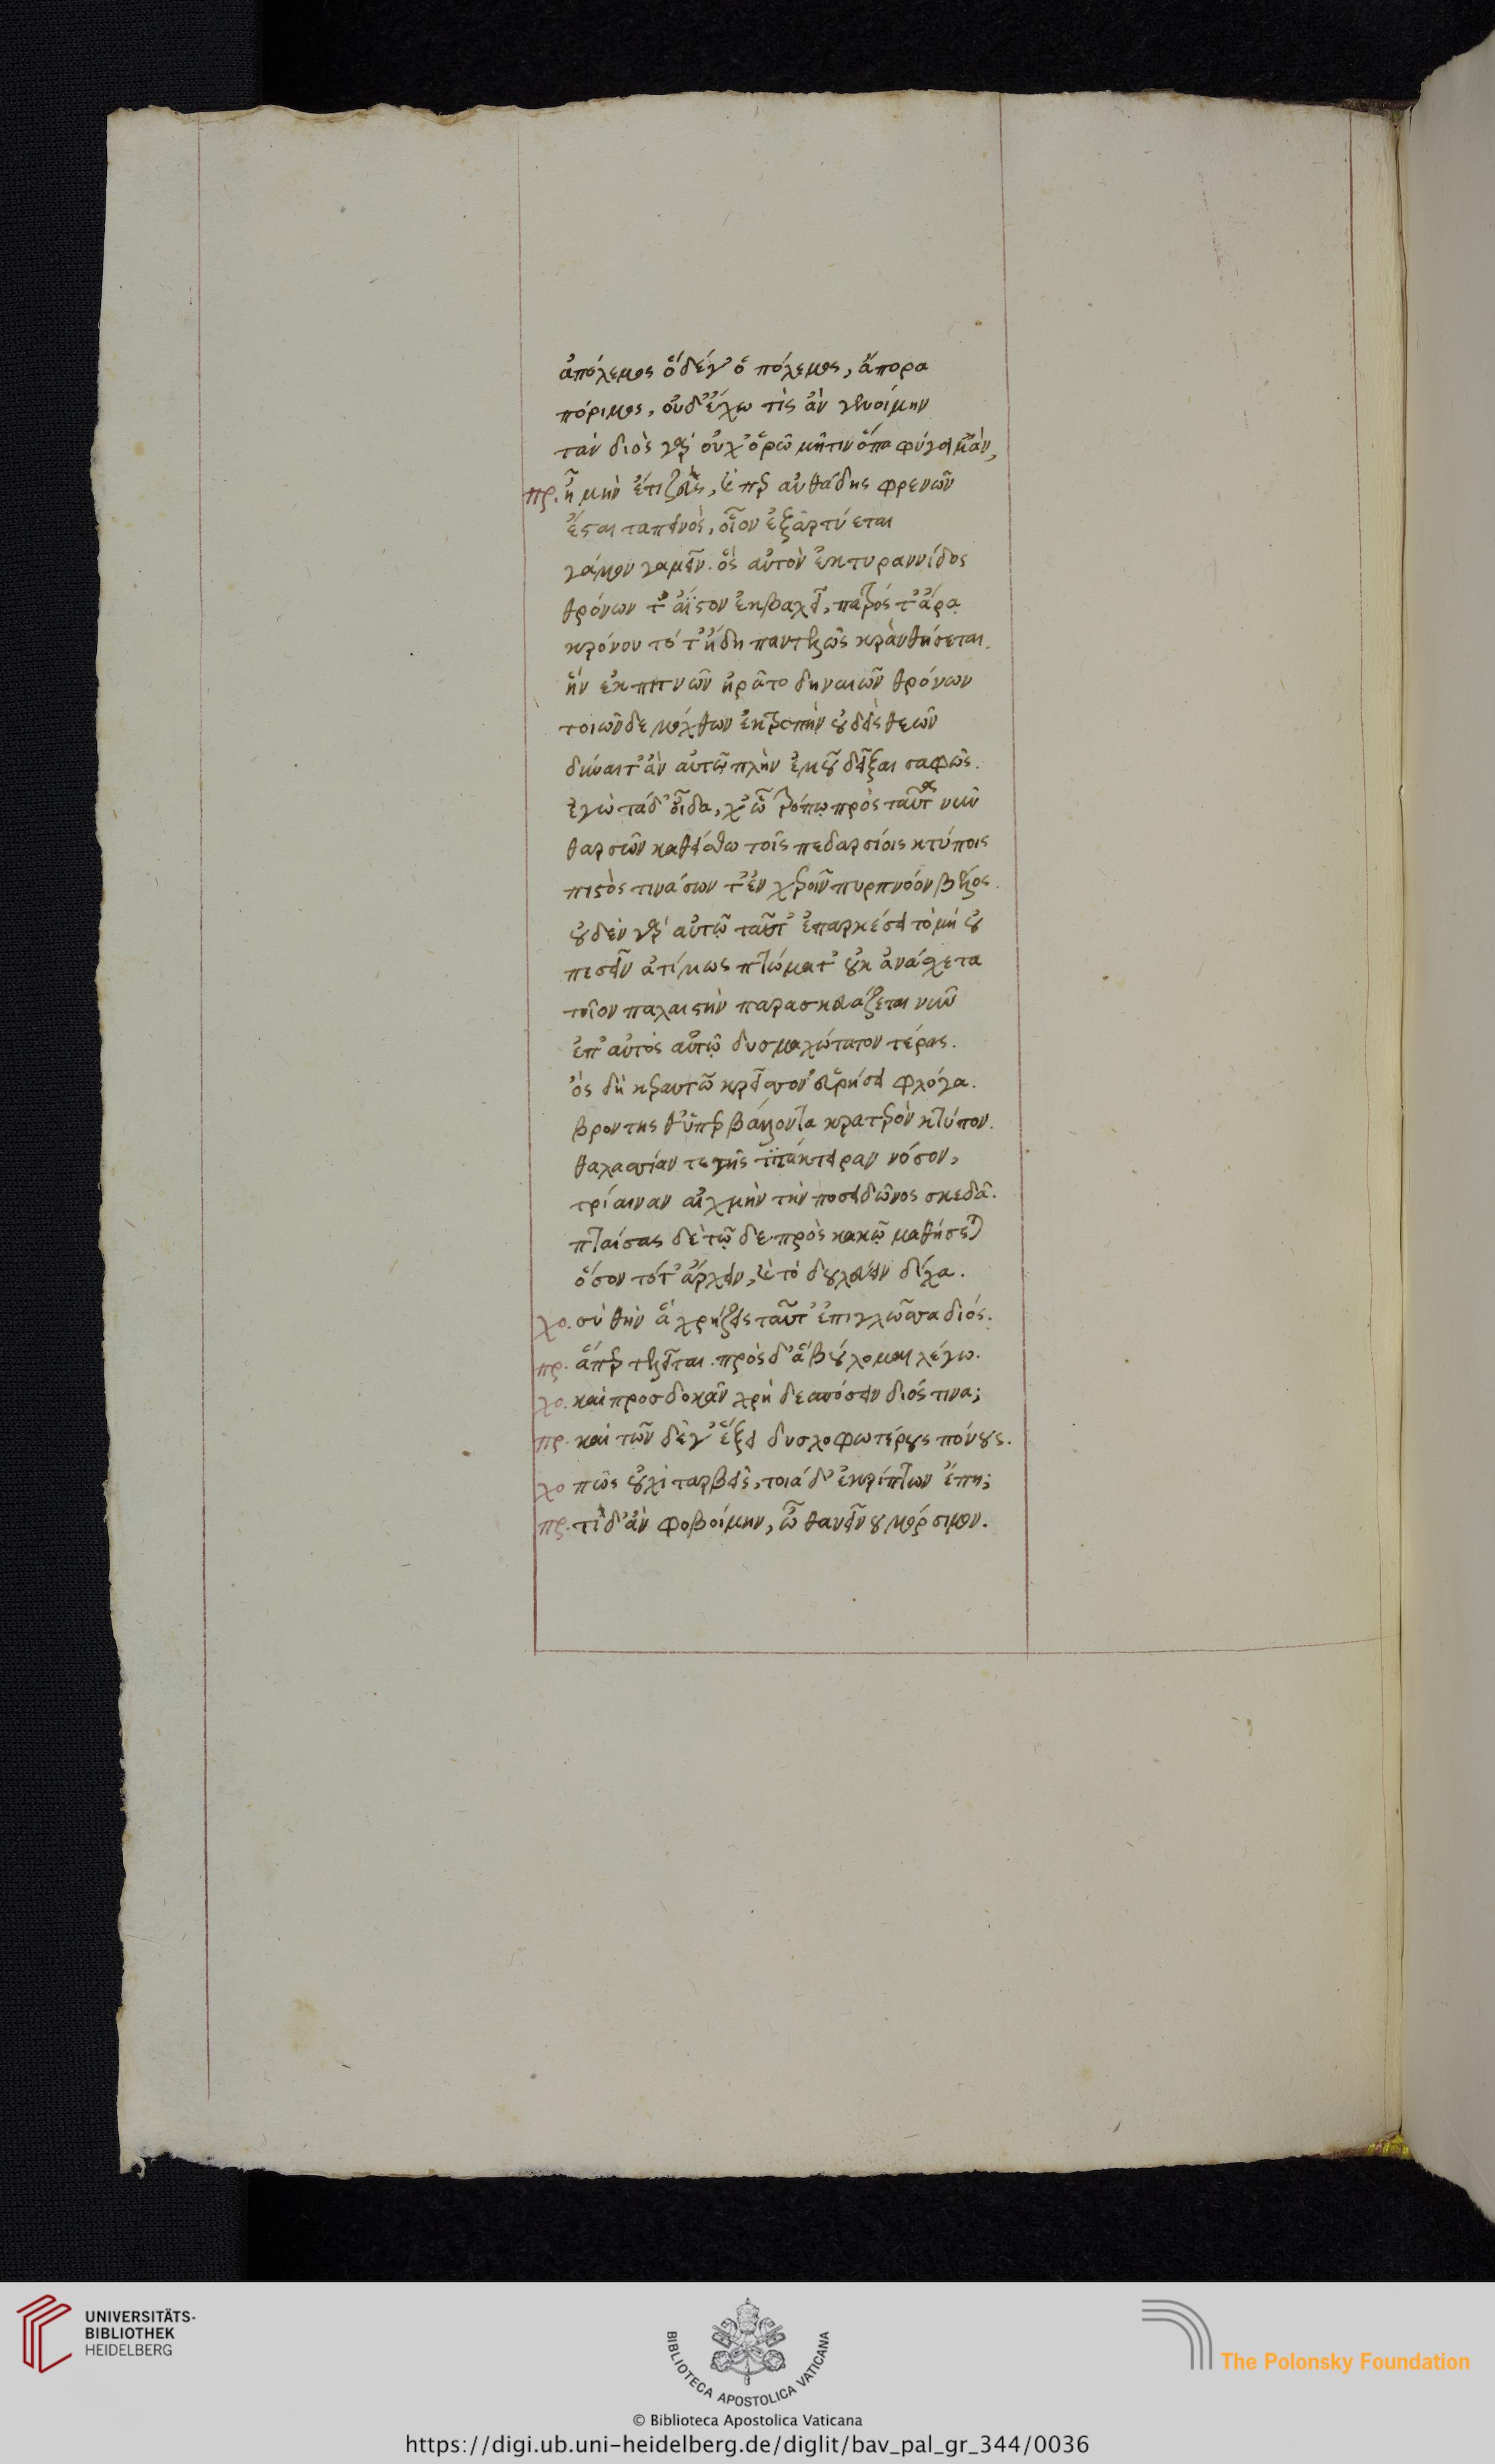 ἀπόλεμος ὅδε γ' ὁ πόλεμος, ἄπορα
πόριμος, οὐδ' ἔχω τίς ἂν γενοίμην
τὰν διὸς γὰρ οὐχ' ὁρῶ μῆτιν ὅπα φύγοιμ' ἄν,
πρ. ἦ μὴν ἔτι ζεὺς, καὶ περ αὐθάδης φρενῶν
ἔσται ταπεινὸς, οἷον ἐξαρτύεται
γάμον γαμεῖν. ὃς αὐτὸν ἐκ τυραννίδος
θρόνων τ' ἄϊστον ἐκβαλεῖ, πατρός τ' ἀρα
κρόνου τότ' ἤδη παντελῶς κρανθήσεται.
ἣν ἐκπιτνῶν ἠρᾶτο δηναιῶν θρόνων
τοιῶνδε μόχθων ἐκτροπὴν οὐδεὶς θεῶν
δύναιτ' ἂν αὐτῷ πλὴν ἐμοῦ δεῖξαι σαφῶς.
ἐγὼ τάδ' οἶδα, χ' ᾧ τρόπῳ πρὸς ταῦτα νυν
θαρσῶν καθείσθω τοῖς πεδαρσίοις κτύποις
πιστὸς τινάσσων τ' ἐν χεροῖν πυρπνόον βέλος.
οὐδὲν γὰρ αὐτῷ ταῦτ' ἐπαρκέσει τὸ μὴ οὐ
πεσεῖν ἀτίμως πτώματ' οὐκ ἀνάσχετα
τοῖον παλαιστὴν παρασκευάζεται νυν
ἐπ' αὐτὸς αὑτῷ δυσμαχώτατον τέρας.
ὃς δὴ κεραυνῶ κρείσσον' εὑρήσει φλόγα.
βροντης θ' ὑπερβάλλοντα κρατερὸν κτύπον.
θαλασσίαν τε γῆς τινάκτειραν νόσον,
τρίαιναν αἰχμὴν τὴν ποσειδῶνος σκεδᾶ.
πταίσας δὲ τῷδε πρὸς κακῷ μαθήσεται
ὅσον τότ' ἄρχειν, καὶ τὸ δουλεύειν δίχα.
χο. σὺ θὴν ἃ χρήζεις ταῦτ' ἐπιγλωσσα διός.
πρ. ἅπερ τελεῖται. πρὸς δ' ἃ βούλομαι λέγω.
χο. καὶ προσδοκᾶν χρὴ δεσπόσειν διός τινα;
πρ. καὶ τῶνδέ γ' ἕξει δυσλοφωτέρους πόνους.
χο πῶς οὐχὶ ταρβεῖς, τοιάδ' ἐκρίπτων ἔπη;
πρ. τί δ' ἂν φοβοίμην, ᾧ θανεῖν οὐ μόρσιμον.
UNIVERSITÄTS-
BIBLIOTHEK
HEIDELBERG
BIBLIOTECA APOSTOLICA VATICANA
The Polonsky Foundation
© Biblioteca Apostolica Vaticana
https://digi.ub.uni-heidelberg.de/diglit/bav_pal_gr_344/0036